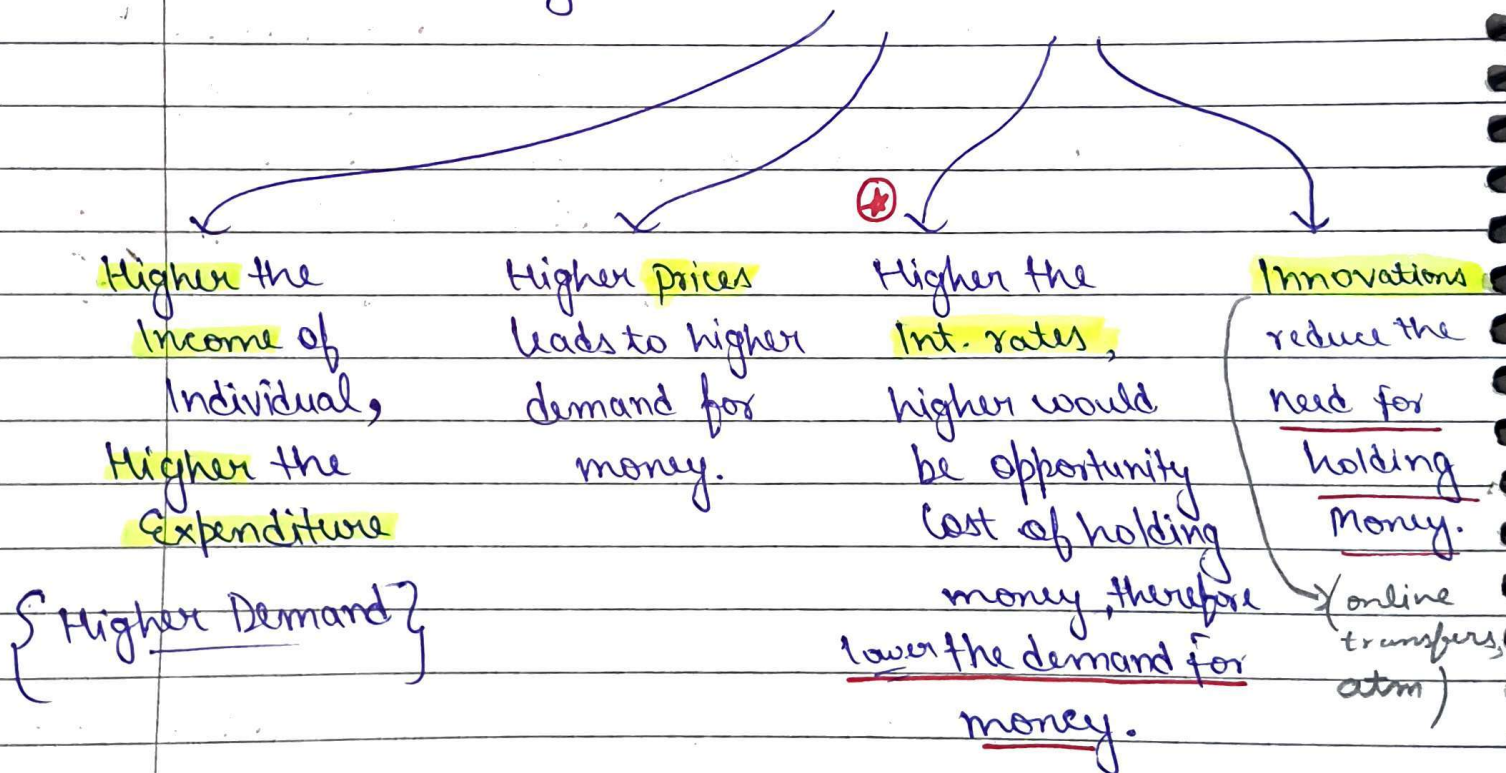 Higher the
Income of
Individual,
Higher the
Expenditure
{Higher Demand}
Higher prices
leads to higher
demand for
money.
Higher the
Int. rates,
higher would
be opportunity
Cost of holding
money, therefore
lower the demand for
money.
Innovations
reduce the
need for
holding
money.
(online
transfers,
atm)